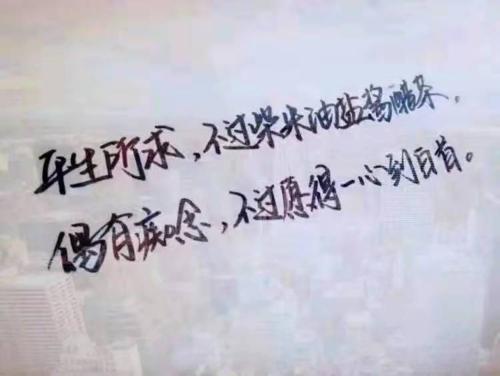 平生所求，不过柴米油盐酱醋茶，
偶有痴念，不过愿得一心到白首。